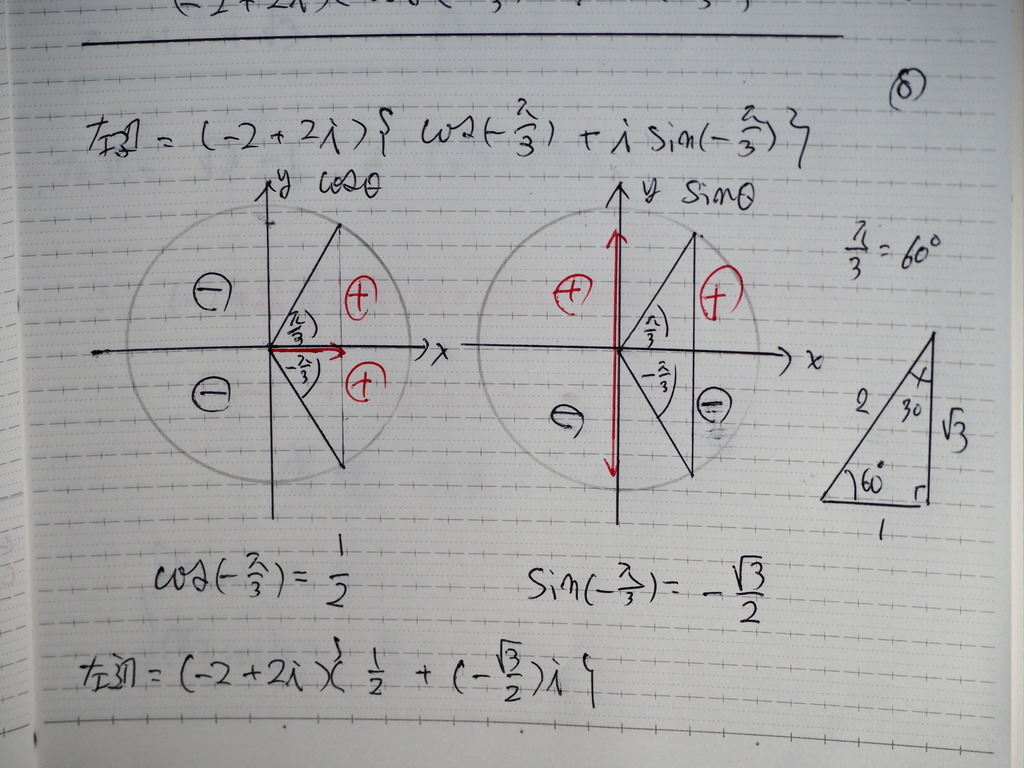 (6)
左辺 = (-2+2i){ cos(-π/3) + i sin(-π/3) }
y cosθ
y sinθ
π/3 = 60°
⊖ ⊕ ⊕ ⊕
π/3 π/3
x x
-π/3 -π/3
⊖ ⊕ ⊖ ⊖
2 30 √3
60°
1
cos(-π/3) = 1/2
sin(-π/3) = -√3/2
左辺 = (-2+2i){ 1/2 + (-√3/2)i }